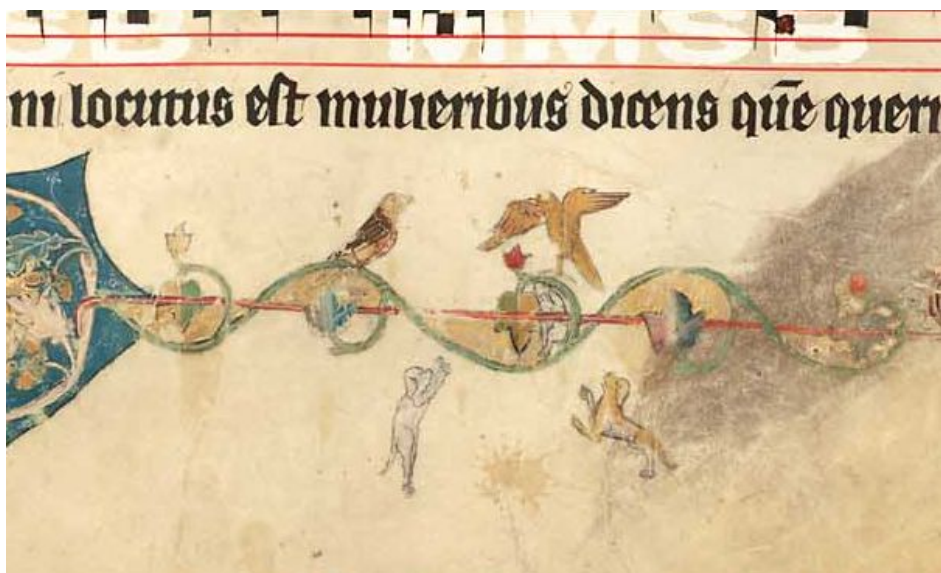 ni locutus est mulieribus dicens quē queri